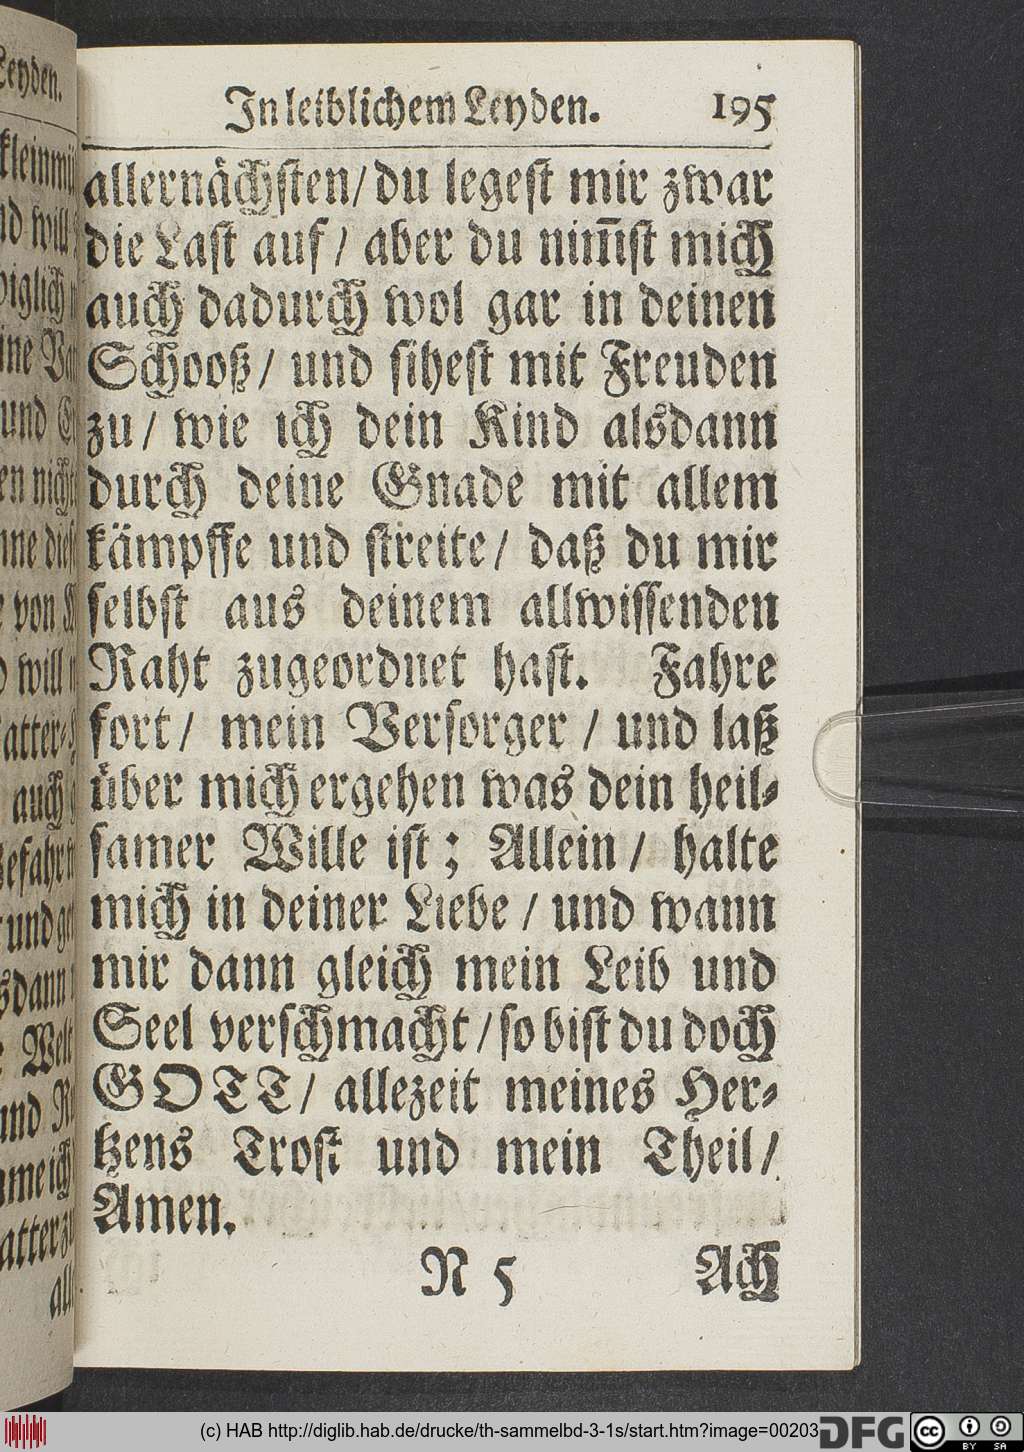 In leiblichem Leyden. 195
allernächsten/ du legest mir zwar
die Last auf/ aber du nim̄st mich
auch dadurch wol gar in deinen
Schooß/ und sihest mit Freuden
zu/ wie ich dein Kind alsdann
durch deine Gnade mit allem
kämpffe und streite/ daß du mir
selbst aus deinem allwissenden
Raht zugeordnet hast. Fahre
fort/ mein Versorger/ und laß
über mich ergehen was dein heil-
samer Wille ist; Allein/ halte
mich in deiner Liebe/ und wann
mir dann gleich mein Leib und
Seel verschmacht/ so bist du doch
GOTT/ allezeit meines Her-
tzens Trost und mein Theil/
Amen.
N 5 Ach
(c) HAB http://diglib.hab.de/drucke/th-sammelbd-3-1s/start.htm?image=00203
DFG
cc BY SA